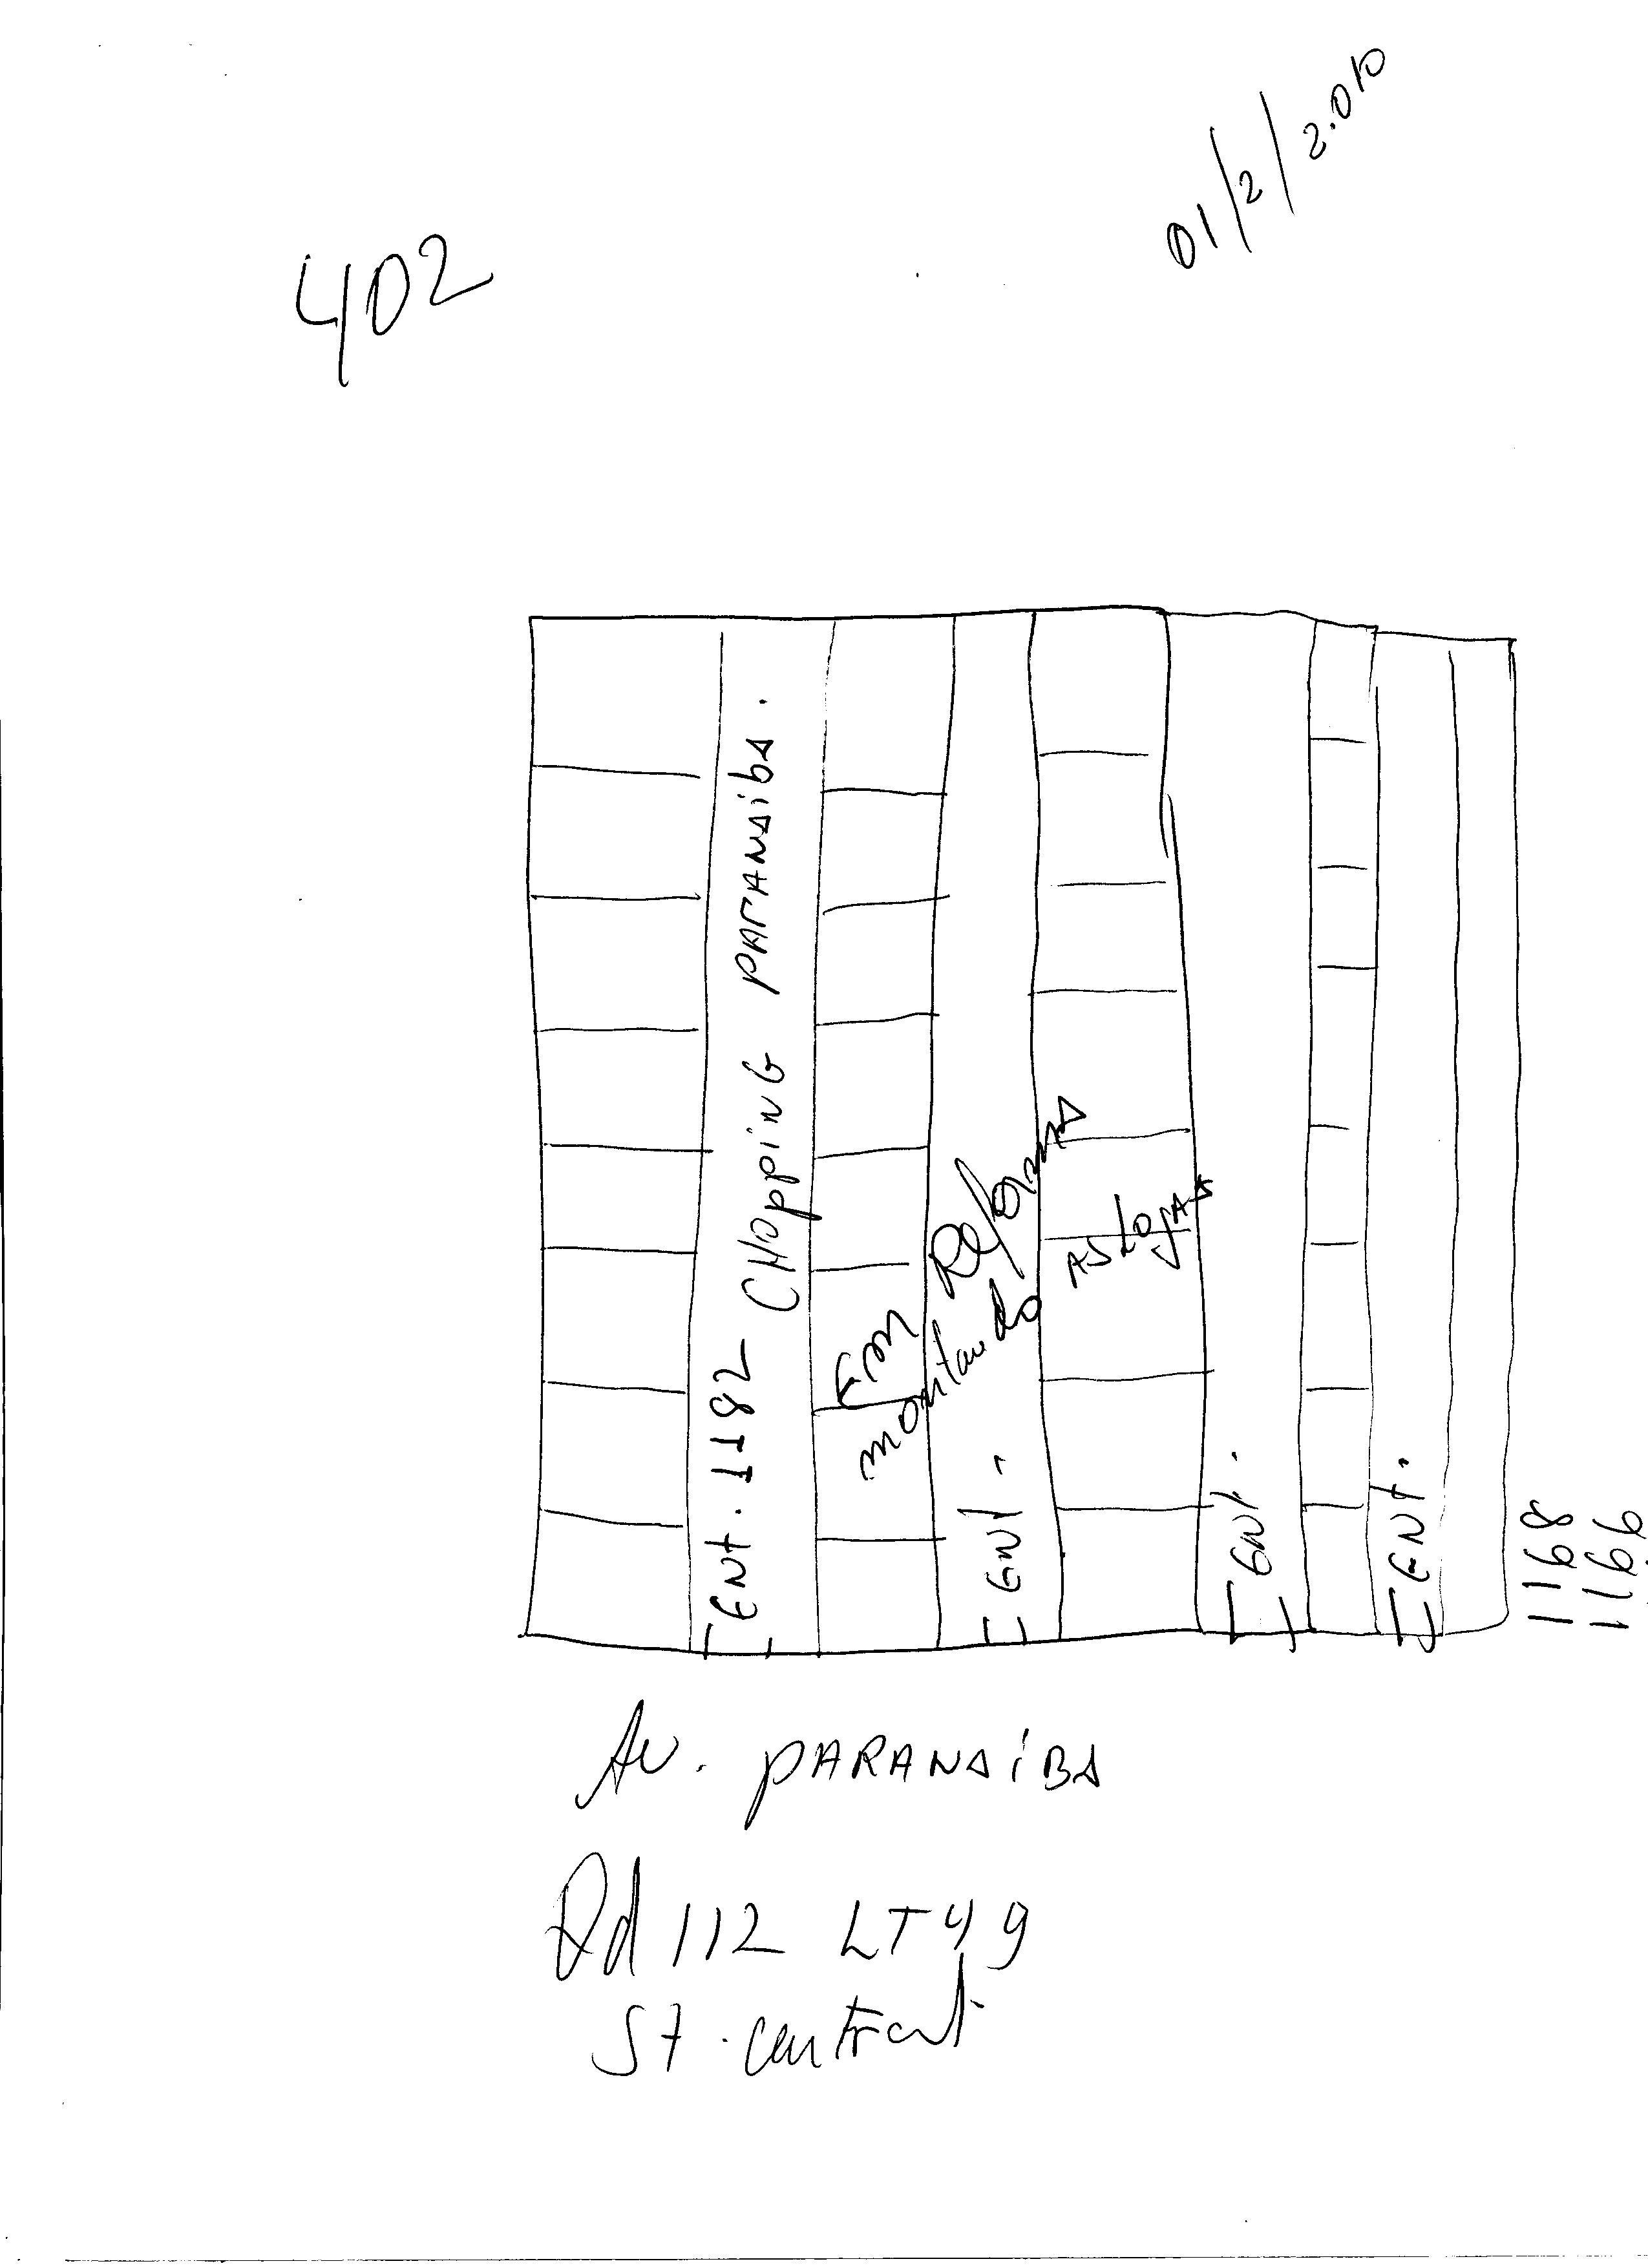 01/2/2.010
402
Ent. 1182 CHOpping PArANAibA.
Em Reforma
montando AS LojAS
Ent.
Ent.
Ent.
1168
1166
Av. PARANAíBA
Qd 112 LT 49
St. central